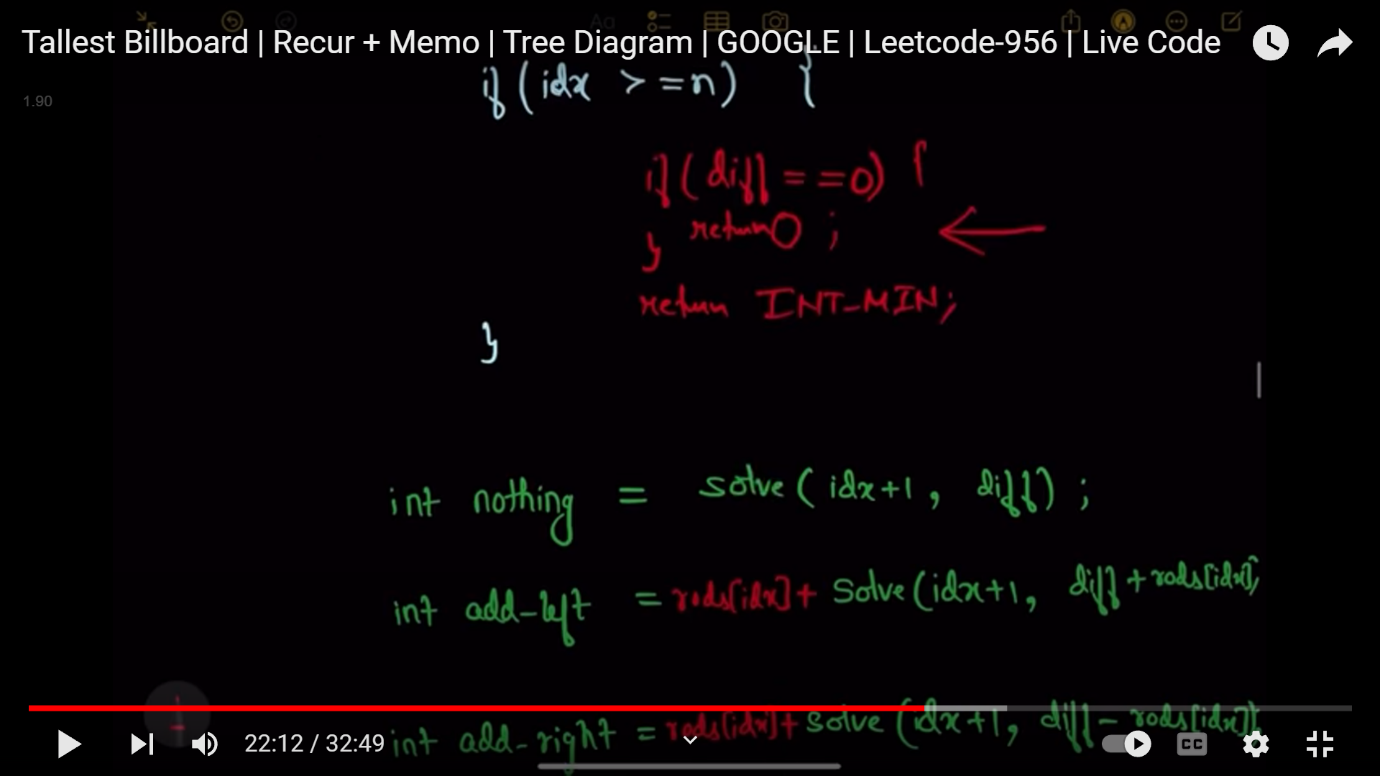 Tallest Billboard | Recur + Memo | Tree Diagram | GOOGLE | Leetcode-956 | Live Code
Aa
if (idx >=n) {
1.90
if (diff ==0) {
return 0 ;
}
return INT_MIN;
}
int nothing = solve( idx+1 , diff) ;
int add-left = rods[idx]+ Solve(idx+1, diff +rods[idx],
int add-right = rods[idx]+ solve (idx+1, diff - rods[idx]);
22:12 / 32:49
CC